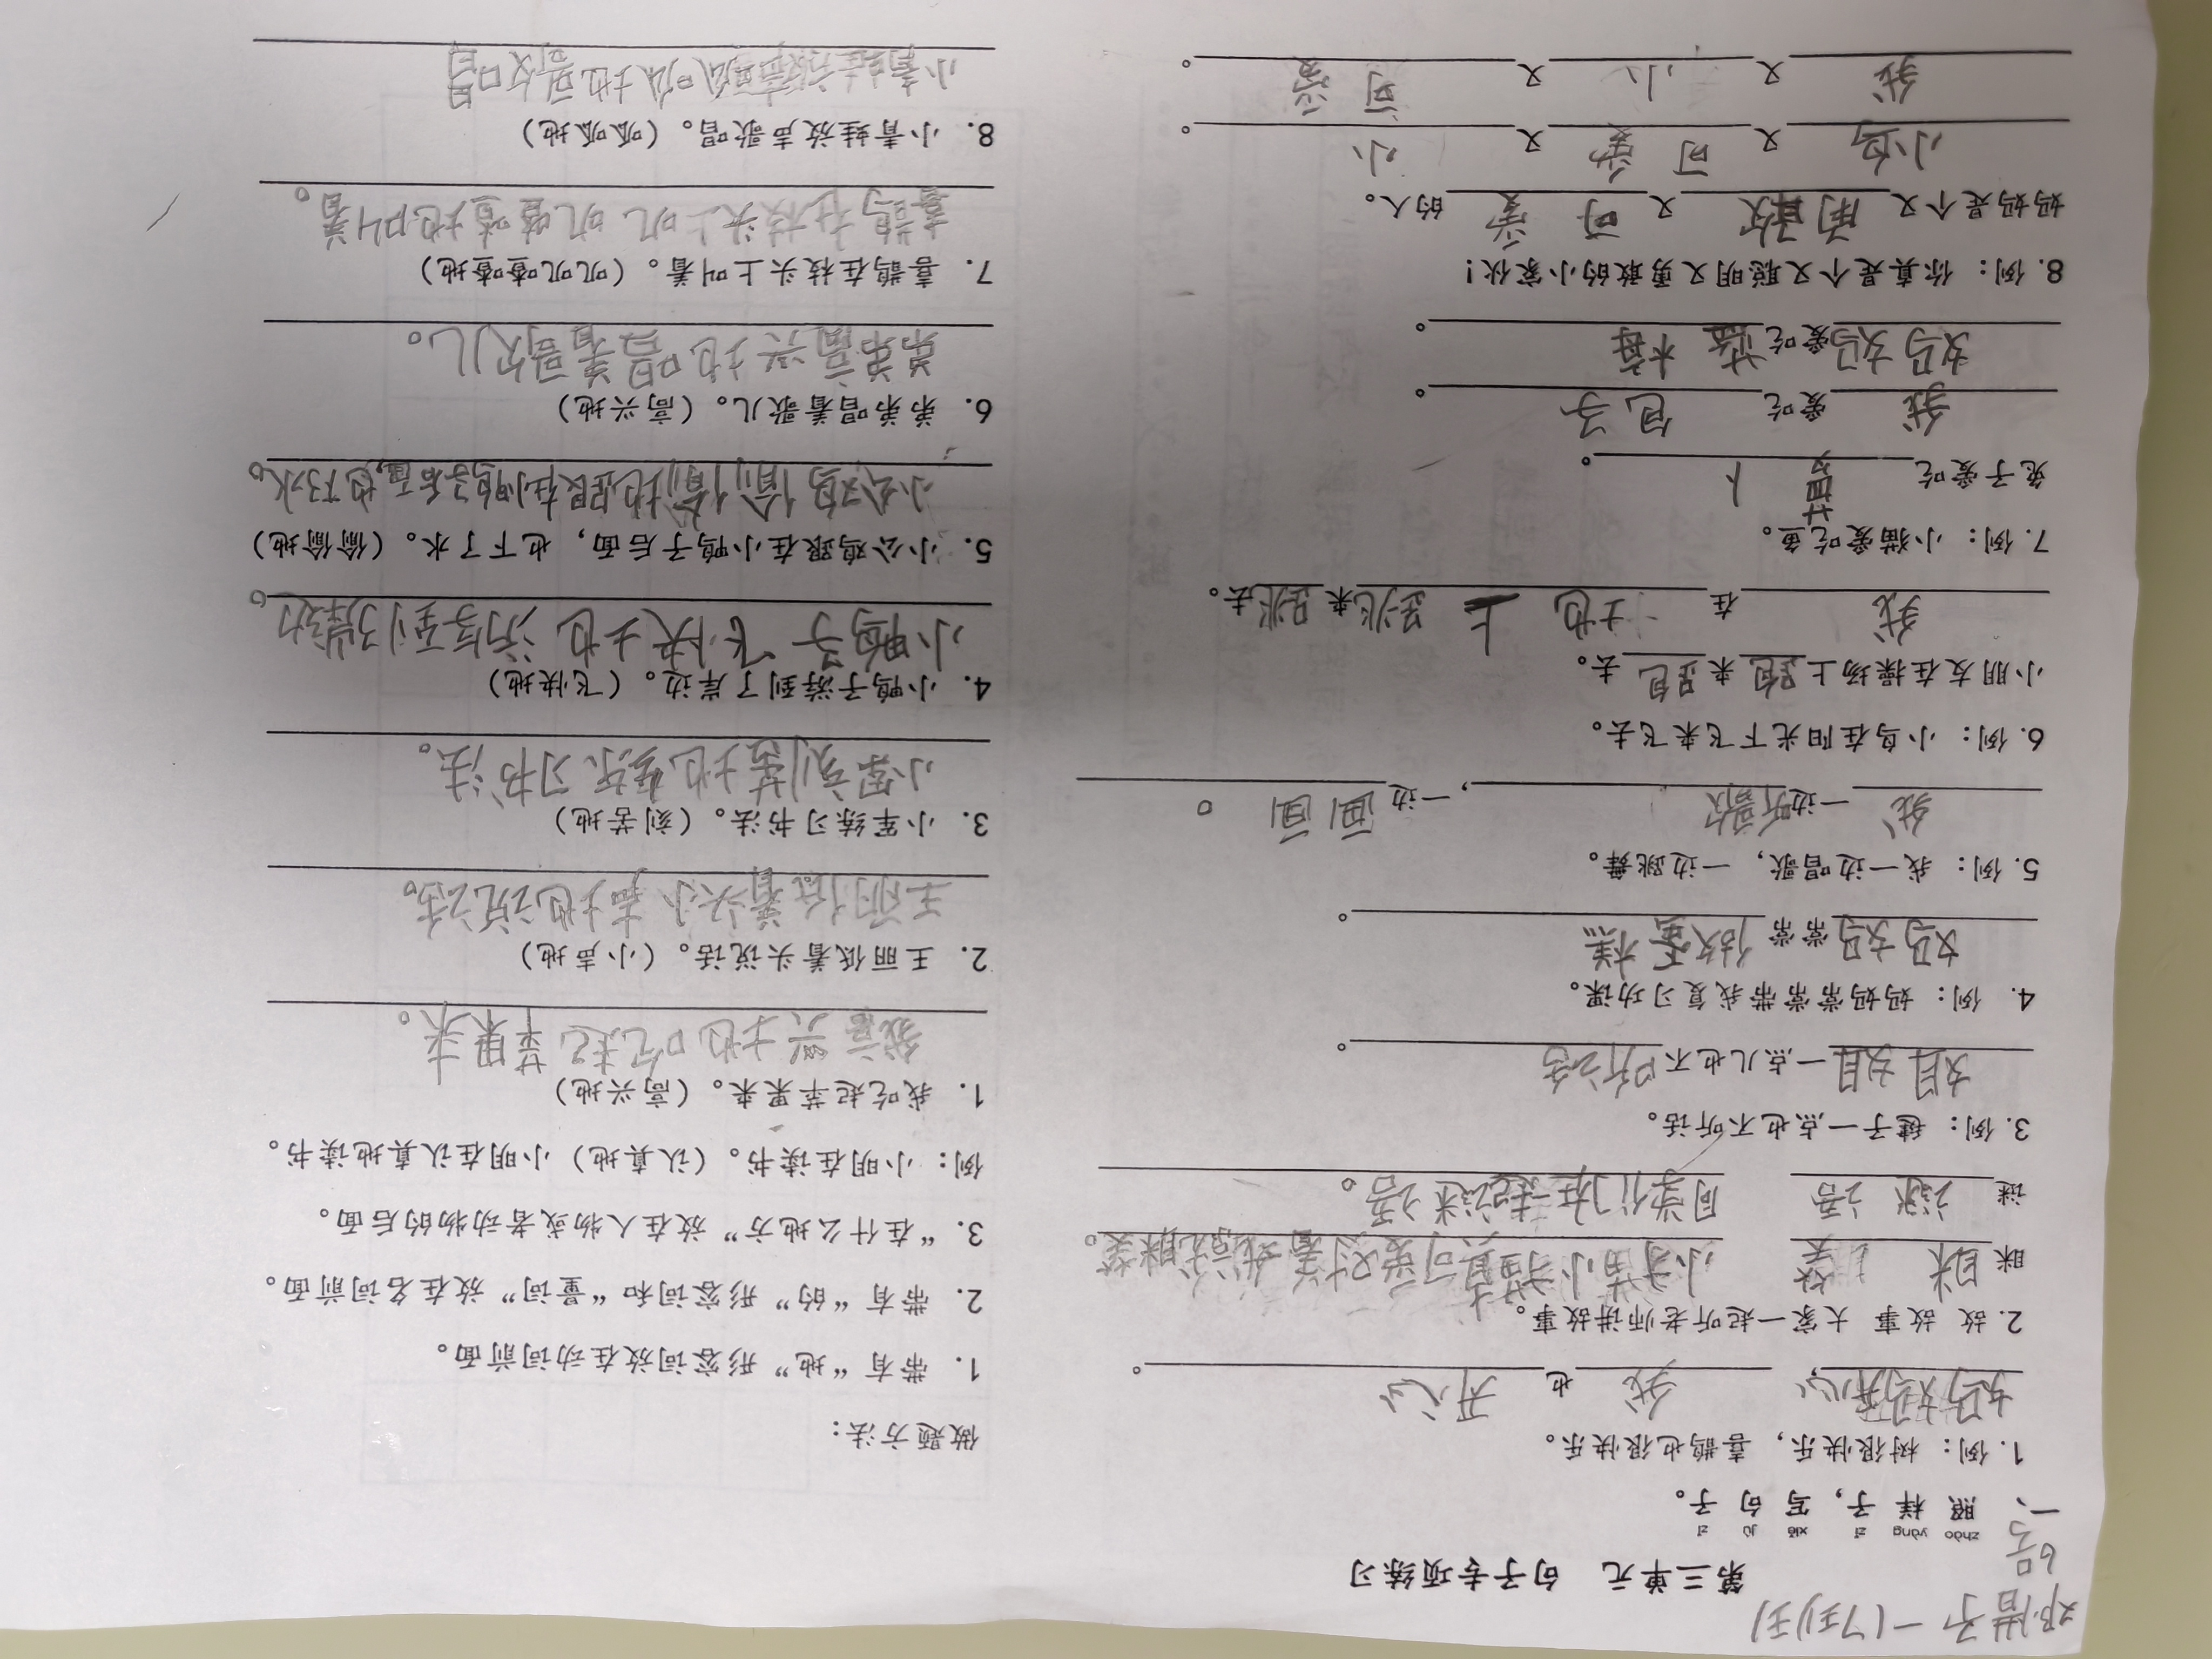 邓 子一(7)班
6号
第三单元 句子专项练习
zhào yàng zǐ xiě jù zǐ
一、照样子，写句子。
1.例：树很快乐，喜鹊也很快乐。
妈妈开心，我也开心。
2.故 故事 大家一起听老师讲故事。
眯 眯 笑 小猫小 可爱对着我 眯笑。
谜 谜语 同学们在一起 谜语。
3.例：毽子一点也不听话。
姐姐一点儿也不听话。
4.例：妈妈常常带我复习功课。
妈妈常常做蛋糕。
5.例：我一边唱歌，一边跳舞。
我一边听歌，一边画画。
6.例：小鸟在阳光下飞来飞去。
小朋友在操场上跑来跑去。
我在地上跳来跳去。
7.例：小猫爱吃鱼。
兔子爱吃萝卜。
我爱吃包子。
妈妈爱吃 。
8.例：你真是个又聪明又勇敢的小家伙！
妈妈是个又勇敢又可爱的人。
小鸟又可爱又小。
我又小又可爱。
做题方法：
1.带有“地”形容词放在动词前面。
2.带有“的”形容词和“量词”放在名词前面。
3.“在什么地方”放在人物或者动物的后面。
例：小明在读书。（认真地）小明在认真地读书。
1.我吃起苹果来。（高兴地）
我高兴地吃起苹果来。
2.王丽低着头说话。（小声地）
王丽低着头小声地说话。
3.小军练习书法。（刻苦地）
小军刻苦地练习书法。
4.小鸭子游到了岸边。（飞快地）
小鸭子飞快地游到了岸边。
5.小公鸡跟在小鸭子后面，也下了水。（偷偷地）
小公鸡偷偷地跟在小鸭子后面，也下了水。
6.弟弟唱着歌儿。（高兴地）
弟弟高兴地唱着歌儿。
7.喜鹊在枝头上叫着。（叽叽喳喳地）
喜鹊在枝头上叽叽喳喳地叫着。
8.小青蛙放声歌唱。（呱呱地）
小青蛙放声呱呱地歌唱